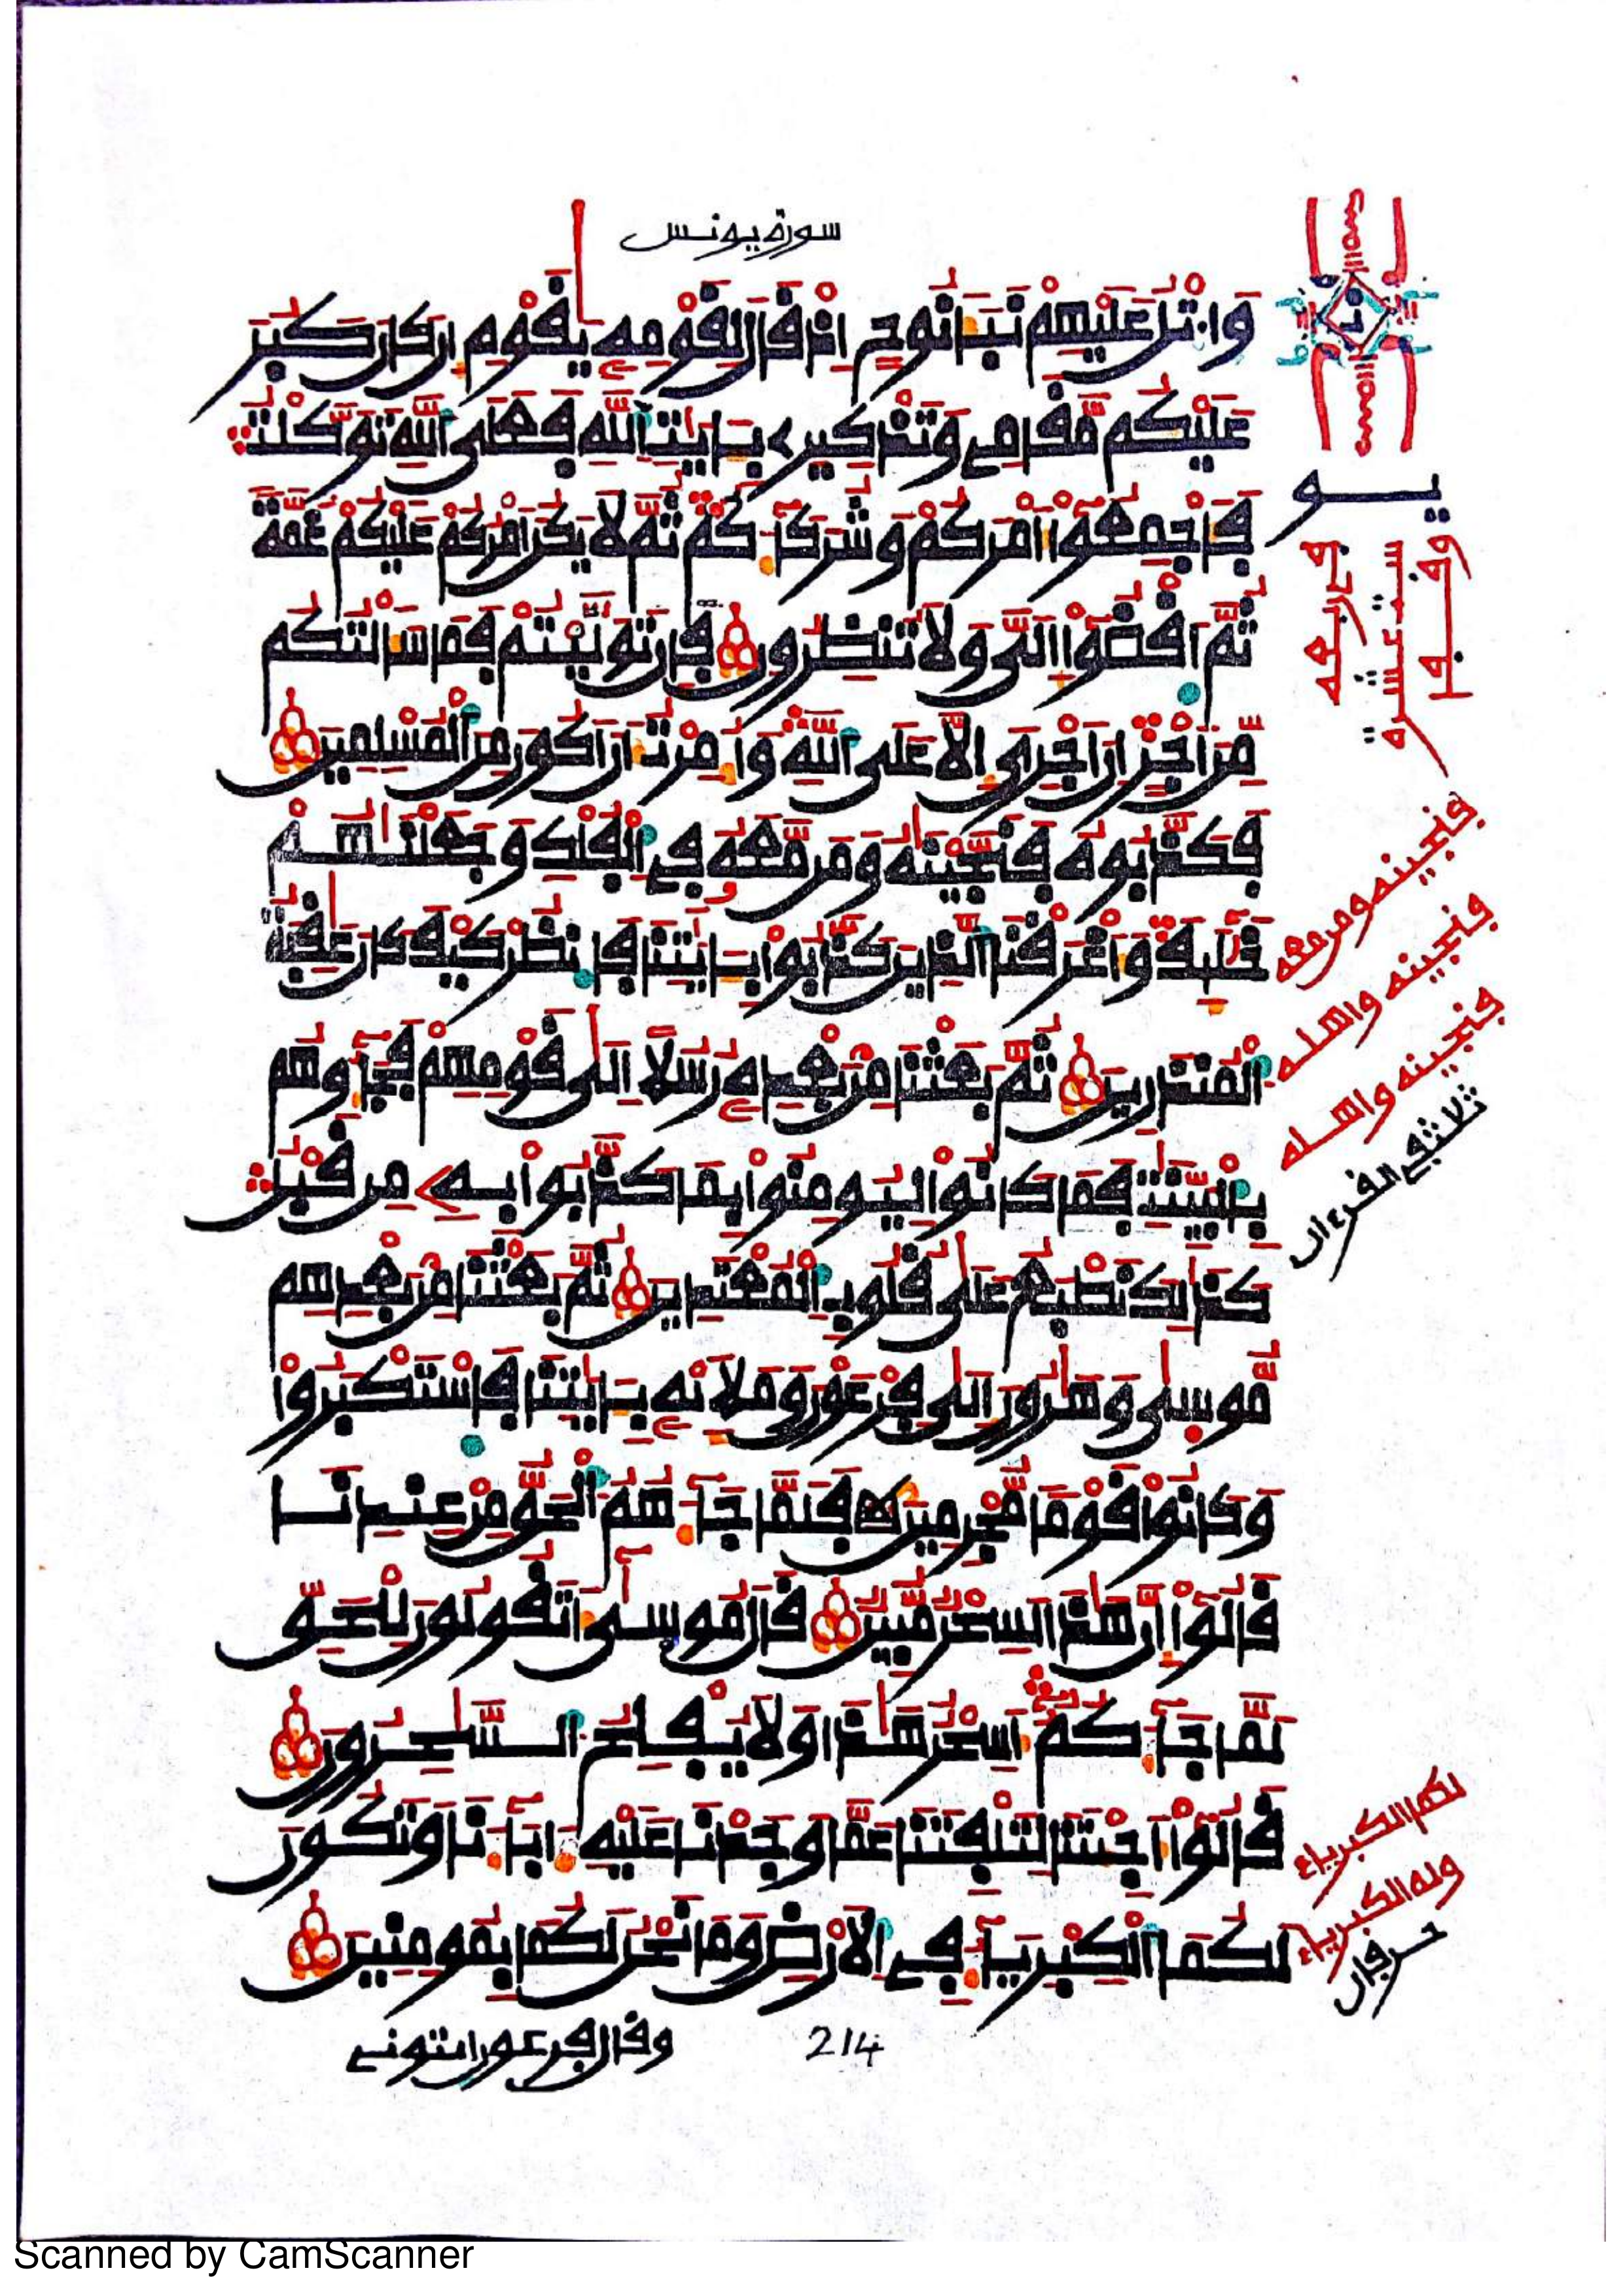 سورة يونس
وَاتْلُ عَلَيْهِمْ نَبَأَ نُوحٍ اِذْ قَالَ لِقَوْمِهِ يَٰقَوْمِ إِن كَانَ كَبُرَ
عَلَيْكُم مَّقَامِے وَتَذْكِيرِے بِـَٔايَٰتِ اِ۬للَّهِ فَعَلَى اَ۬للَّهِ تَوَكَّلْتُ
فَأَجْمِعُوٓاْ أَمْرَكُمْ وَشُرَكَآءَكُمْ ثُمَّ لَا يَكُنَ اَمْرُكُمْ عَلَيْكُمْ غُمَّةٗ
ثُمَّ اَقْضُوٓاْ إِلَيَّ وَلَا تُنظِرُونِ فَإِن تَوَلَّيْتُمْ فَمَا سَأَلْتُكُم
مِّنَ اَجْرٍ اِنَ اَجْرِيَ إِلَّا عَلَى اَ۬للَّهِ وَأُمِرْتُ أَنَ اَكُونَ مِنَ اَ۬لْمُسْلِمِينَ
فَكَذَّبُوهُ فَنَجَّيْنَٰهُ وَمَن مَّعَهُ فِے اِ۬لْفُلْكِ وَجَعَلْنَٰهُمْ
خَلَٰٓئِفَ وَأَغْرَقْنَا اَ۬لذِينَ كَذَّبُواْ بِـَٔايَٰتِنَا فَانظُرْ كَيْفَ كَانَ عَٰقِبَةُ
اُ۬لْمُنذَرِينَ ثُمَّ بَعَثْنَا مِنۢ بَعْدِهِ رُسُلاً اِلَىٰ قَوْمِهِمْ فَجَآءُوهُم
بِالْبَيِّنَٰتِ فَمَا كَانُواْ لِيُومِنُواْ بِمَا كَذَّبُواْ بِهِ مِن قَبْلُ
كَذَٰلِكَ نَطْبَعُ عَلَىٰ قُلُوبِ اِ۬لْمُعْتَدِينَ ثُمَّ بَعَثْنَا مِنۢ بَعْدِهِم
مُّوسَىٰ وَهَٰرُونَ إِلَىٰ فِرْعَوْنَ وَمَلَإِيْهِ بِـَٔايَٰتِنَا فَاسْتَكْبَرُواْ
وَكَانُواْ قَوْمًا مُّجْرِمِينَ فَلَمَّا جَآءَهُمُ اُ۬لْحَقُّ مِنْ عِندِنَا
قَالُوٓاْ إِنَّ هَٰذَا لَسِحْرٌ مُّبِينٌ قَالَ مُوسَىٰٓ أَتَقُولُونَ لِلْحَقِّ
لَمَّا جَآءَكُمُۥٓ أَسِحْرٌ هَٰذَا وَلَا يُفْلِحُ اُ۬لسَّٰحِرُونَ
قَالُوٓاْ أَجِئْتَنَا لِتَلْفِتَنَا عَمَّا وَجَدْنَا عَلَيْهِ ءَابَآءَنَا وَتَكُونَ
لَكُمَا اَ۬لْكِبْرِيَآءُ فِے اِ۬لَارْضِ وَمَا نَحْنُ لَكُمَا بِمُومِنِينَ
وقال فرعون ايتونے
214
يو
فنجينه ومن معه
فانجينه واهله
فنجينه واهله
ثلاث فے القرءان
لكما الكبرياء
وله الكبرياء
حرفان
Scanned by CamScanner